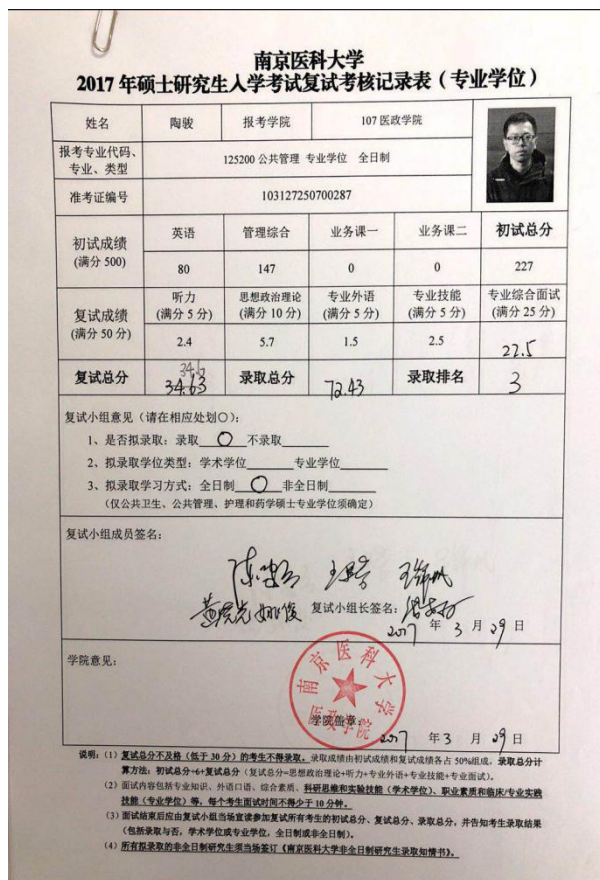 南京医科大学
2017 年硕士研究生入学考试复试考核记录表（专业学位）
姓名 陶骏 报考学院 107 医政学院
报考专业代码、专业、类型 125200 公共管理 专业学位 全日制
准考证编号 103127250700287
初试成绩（满分 500） 英语 管理综合 业务课一 业务课二 初试总分
80 147 0 0 227
复试成绩（满分 50 分） 听力（满分 5 分） 思想政治理论（满分 10 分） 专业外语（满分 5 分） 专业技能（满分 5 分） 专业综合面试（满分 25 分）
2.4 5.7 1.5 2.5 22.5
34.6
复试总分 34.63 录取总分 72.43 录取排名 3
复试小组意见（请在相应处划○）：
1、是否拟录取：录取 ○ 不录取
2、拟录取学位类型：学术学位 专业学位
3、拟录取学习方式：全日制 ○ 非全日制
（仅公共卫生、公共管理、护理和药学硕士专业学位须确定）
复试小组成员签名：
复试小组长签名：
2017 年 3 月 29 日
学院意见：
南京医科大学
医政学院
学院盖章：
2017 年 3 月 29 日
说明：（1）复试总分不及格（低于 30 分）的考生不得录取。录取成绩由初试成绩和复试成绩各占 50%组成，录取总分计
算方法：初试总分÷6+复试总分（复试总分=思想政治理论+听力+专业外语+专业技能+专业面试）。
（2）面试内容包括专业知识、外语口语、综合素质、科研思维和实验技能（学术学位）、职业素质和临床/专业实践
技能（专业学位）等，每个考生面试时间不得少于 10 分钟。
（3）面试结束后应由复试小组当场宣读参加复试所有考生的初试总分、复试总分、录取总分，并告知考生录取结果
（包括录取与否，学术学位或专业学位，全日制或非全日制）。
（4）所有拟录取的非全日制研究生须当场签订《南京医科大学非全日制研究生录取知情书》。